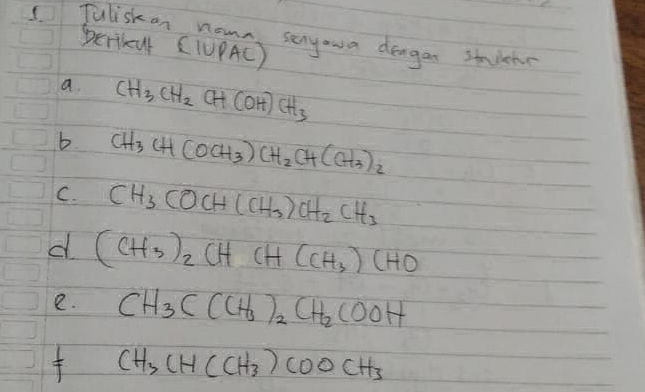 1. Tuliskan nama senyawa dengan struktur
berikut (IUPAC)
a. CH3 CH2 CH (OH) CH3
b CH3 CH (OCH3) CH2 CH (CH3)2
c. CH3 COCH (CH3) CH2 CH3
d (CH3)2 CH CH (CH3) CHO
e. CH3C (CH3)2 CH2 COOH
f CH3 CH (CH3) COO CH3